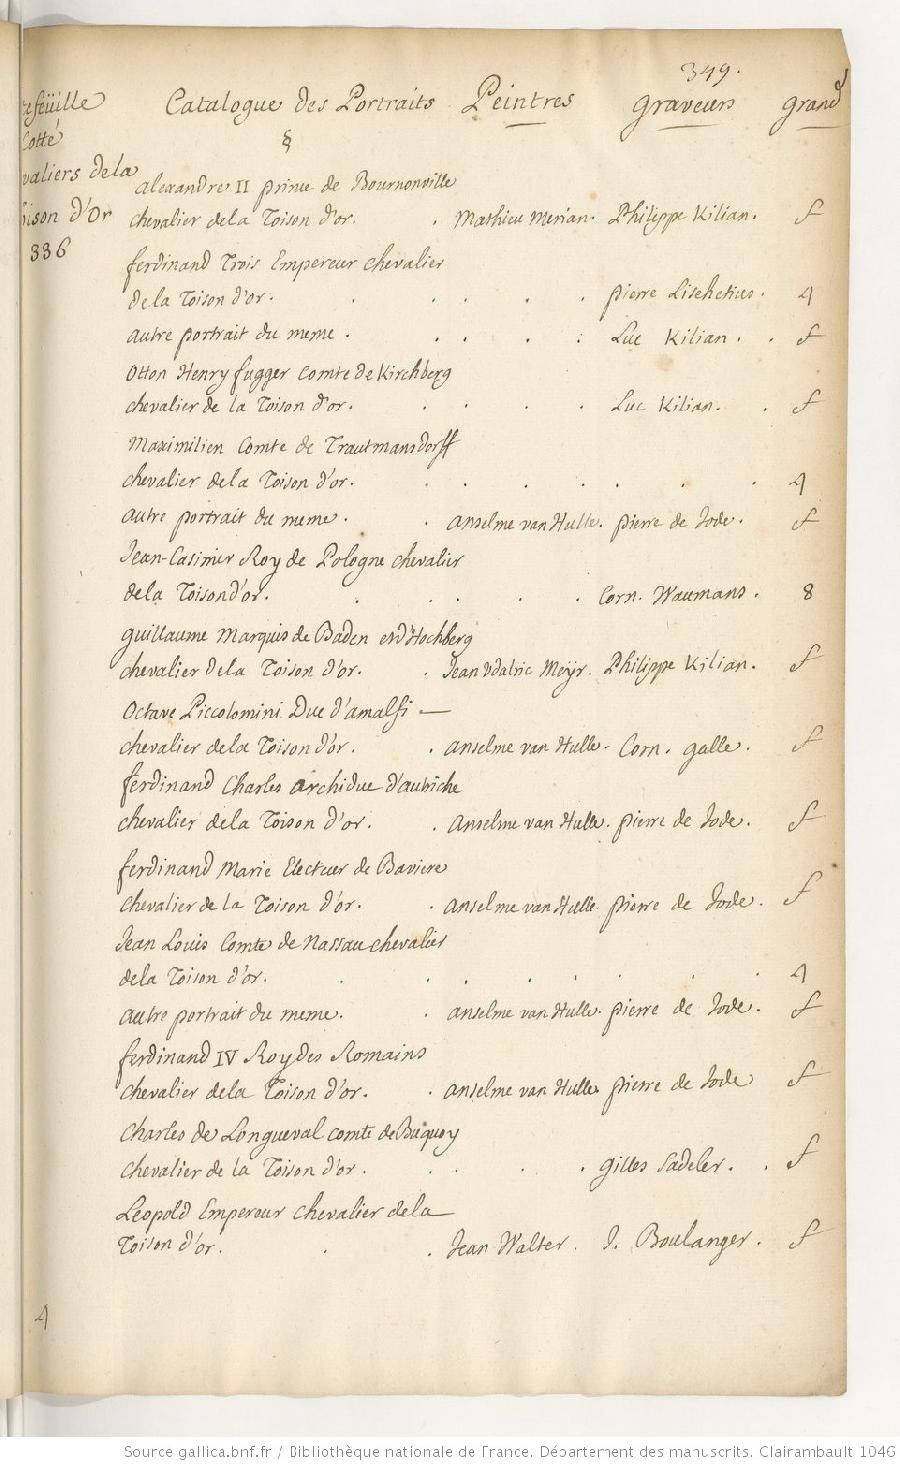 349.
Catalogue des Portraits Peintres graveurs grand
§
Cotté
valiers dela
ison d'Or
336
alexandre II prince de Bournonville
chevalier dela Toison d'or. . Mathieu Merian. Philippe Kilian. f
ferdinand Trois Empereur chevalier
dela Toison d'or. . . . . . pierre Lisehetius. 4
autre portrait du meme. . . . . Luc Kilian. . f
Otton Henry fugger comte de Kirchberg
chevalier de la Toison d'or. . . . . Luc Kilian. . f
Maximilien Comte de Trautmansdorff
chevalier dela Toison d'or. . . . . . . . 4
autre portrait du meme. . anselme van Hulle. pierre de Jode. f
Jean-Casimir Roy de Pologne chevalier
dela Toison d'or. . . . . . Corn. Waumans. 8
guillaume Marquis de Baden et d'Hochberg
chevalier dela Toison d'or. . Jean Vdalric Meÿr. Philippe Kilian. f
Octave Piccolomini Duc d'amalfi —
chevalier dela Toison d'or. . anselme van Hulle. Corn. galle. f
ferdinand Charles archiduc d'autriche
chevalier dela Toison d'or. . anselme van Hulle. pierre de Jode. f
ferdinand Marie Electeur de Baviere
chevalier de la Toison d'or. . anselme van Hulle. pierre de Jode. f
Jean Louis Comte de Nassau chevalier
dela Toison d'or. . . . . . . . 4
autre portrait du meme. . anselme van Hulle. pierre de Jode. f
ferdinand IV Roy des Romains
chevalier dela Toison d'or. . anselme van Hulle. pierre de Jode f
Charles de Longueval comte de Buquoy
chevalier de la Toison d'or. . . . . gilles Sadeler. . f
Leopold Empereur chevalier dela
Toison d'or. . . Jean Walter. J. Boulanger. f
4
Source gallica.bnf.fr / Bibliothèque nationale de France. Département des manuscrits. Clairambault 1046